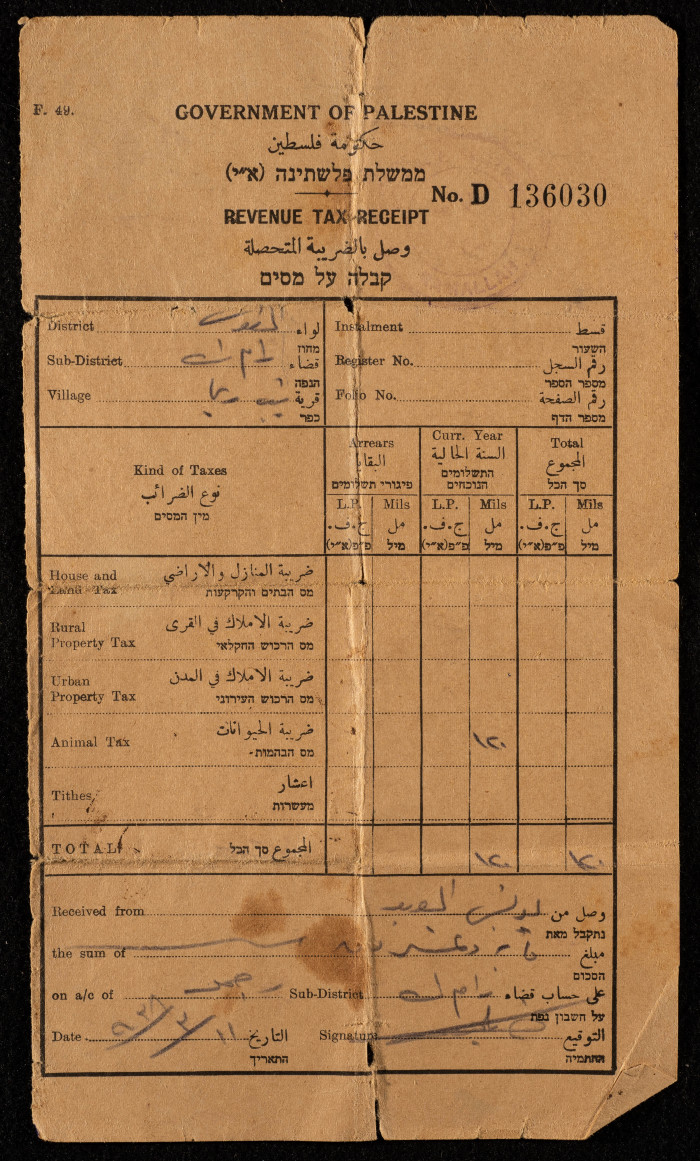 F. 49.
GOVERNMENT OF PALESTINE
حكومة فلسطين
ממשלת פלשתינה (א״י)
No. D 136030
REVENUE TAX RECEIPT
وصل بالضريبة المتحصلة
קבלה על מסים
District القدس لواء
מחוז
Sub-District رام الله قضاء
הנפה
Village قرية
כפר
Instalment قسط
השעור
Register No. رقم السجل
מספר הספר
Folio No. رقم الصفحة
מספר הדף
Kind of Taxes
نوع الضرائب
מין המסים
Arrears
البقايا
פיגורי תשלומים
Curr. Year
السنة الحالية
התשלומים
הנוכחים
Total
المجموع
סך הכל
L.P. Mils L.P. Mils L.P. Mils
ج.ف. مل ج.ف. مل ج.ف. مل
פ״פ(א״י) מיל פ״פ(א״י) מיל פ״פ(א״י) מיל
House and Land Tax
ضريبة المنازل والاراضي
מס הבתים והקרקעות
Rural Property Tax
ضريبة الاملاك في القرى
מס הרכוש החקלאי
Urban Property Tax
ضريبة الاملاك في المدن
מס הרכוש העירוני
Animal Tax
ضريبة الحيوانات
מס הבהמות
١٢٠
Tithes
اعشار
מעשרות
TOTAL المجموع סך הכל ١٢٠ ١٢٠
Received from وصل من
נתקבל מאת
the sum of مبلغ
הסכום
on a/c of Sub-District رام الله على حساب قضاء
על חשבון נפת
Date ١١/٣/٩٣٨ التاريخ
התאריך
Signature التوقيع
החתימה